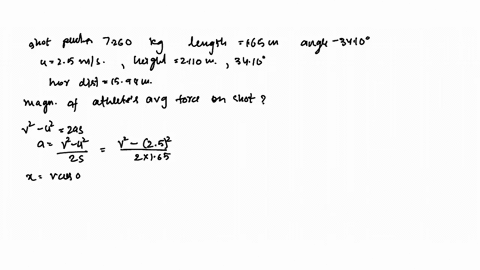 shot putter 7.260 kg length = 1.65 m angle - 34.10°
u = 2.5 m/s. , height = 2.110 m. , 34.10°
hor dist = 15.94 m.
magn. of athlete's avg force on shot ?
v² - u² = 2as
a = v² - u² / 2s = v² - (2.5)² / 2 x 1.65
x = v cos θ